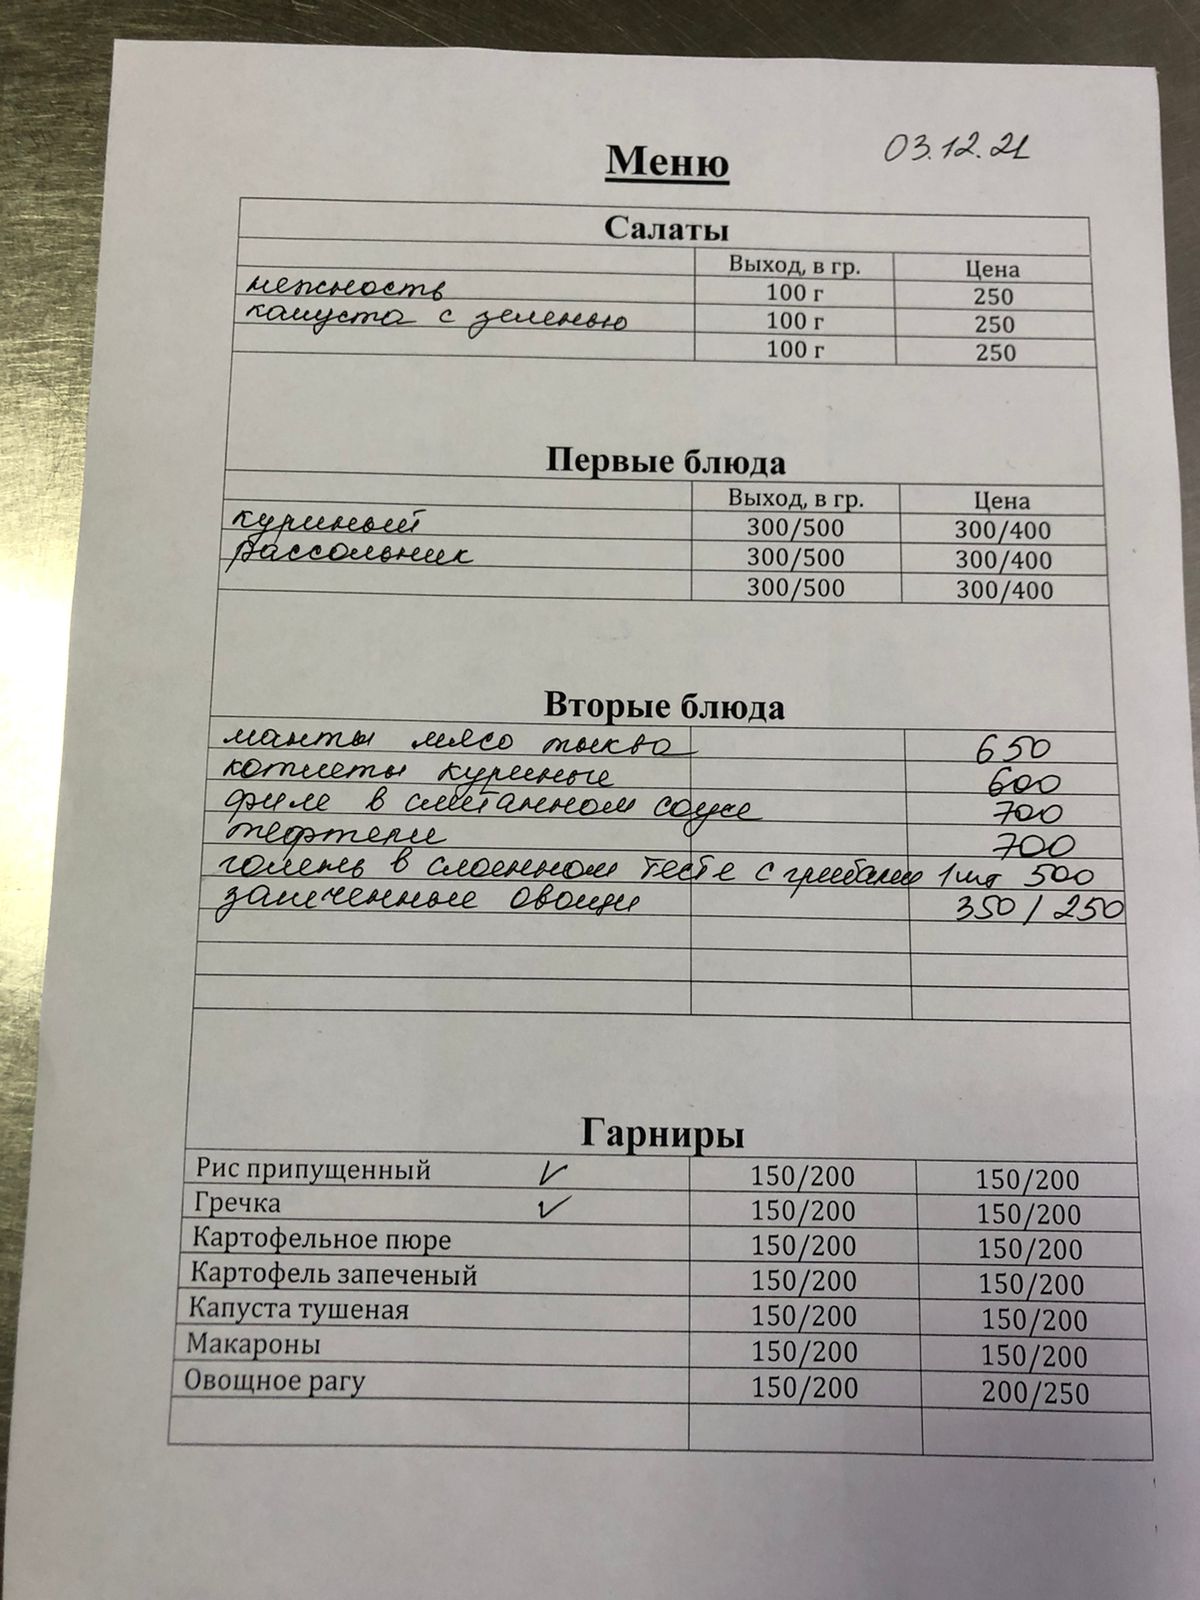 Меню
03.12.21
Салаты
Выход, в гр. Цена
нежность 100 г 250
капуста с зеленью 100 г 250
100 г 250
Первые блюда
Выход, в гр. Цена
куриный 300/500 300/400
рассольник 300/500 300/400
300/500 300/400
Вторые блюда
манты мясо тыква 650
котлеты куриные 600
филе в сметанном соусе 700
тефтели 700
голень в слоенном тесте с грибами 1шт 500
запеченные овощи 350/250
Гарниры
Рис припущенный ✓ 150/200 150/200
Гречка ✓ 150/200 150/200
Картофельное пюре 150/200 150/200
Картофель запеченый 150/200 150/200
Капуста тушеная 150/200 150/200
Макароны 150/200 150/200
Овощное рагу 150/200 200/250